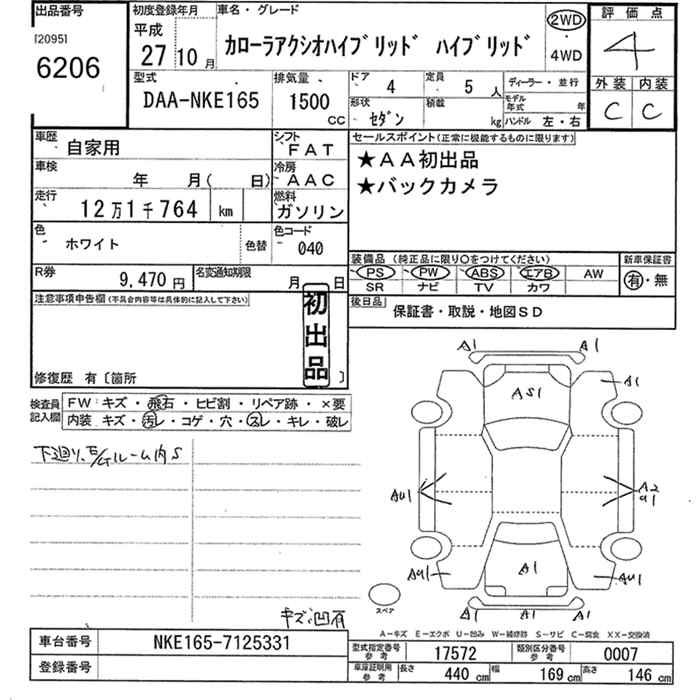 出品番号
[2095]
6206
初度登録年月
平成
27 10 月
車名・グレード
カローラアクシオハイブリッド ハイブリッド
2WD
・
4WD
評価点
4
外装 内装
C C
型式
DAA-NKE165
排気量
1500
CC
ドア
4
定員
5 人
形状
セダン
積載
kg
ディーラー・並行
モデル年式 年
ハンドル 左・右
車歴
自家用
シフト
FAT
車検
年 月( 日)
冷房
AAC
走行
12万1千764 km
燃料
ガソリン
色
ホワイト
色替
色コード
040
R券
9,470 円
名変通知期限
月 日
セールスポイント(正常に機能するものに限ります)
★AA初出品
★バックカメラ
装備品(純正品に限り○をつけてください)
PS PW ABS エアB AW
SR ナビ TV カワ
新車保証書
有・無
後日品
保証書・取説・地図SD
注意事項申告欄(不具合内容等は具体的に記入して下さい)
初出品
修復歴 有〔箇所 〕
検査員記入欄
FW: キズ・飛石・ヒビ割・リペア跡・×要
内装 キズ・汚レ・コゲ・穴・スレ・キレ・破レ
下廻り、
ルーム内S
キズ凹有
A1 A1
AS1
A1
AU1
A2
A1
AU1
A1 A1
スペア
A-キズ E-エクボ U-凹み W-補修跡 S-サビ C-腐食 XX-交換済
車台番号
NKE165-7125331
登録番号
型式指定番号
参考
17572
類別区分番号
参考
0007
車庫証明用
参考
長さ
440 cm
幅
169 cm
高さ
146 cm